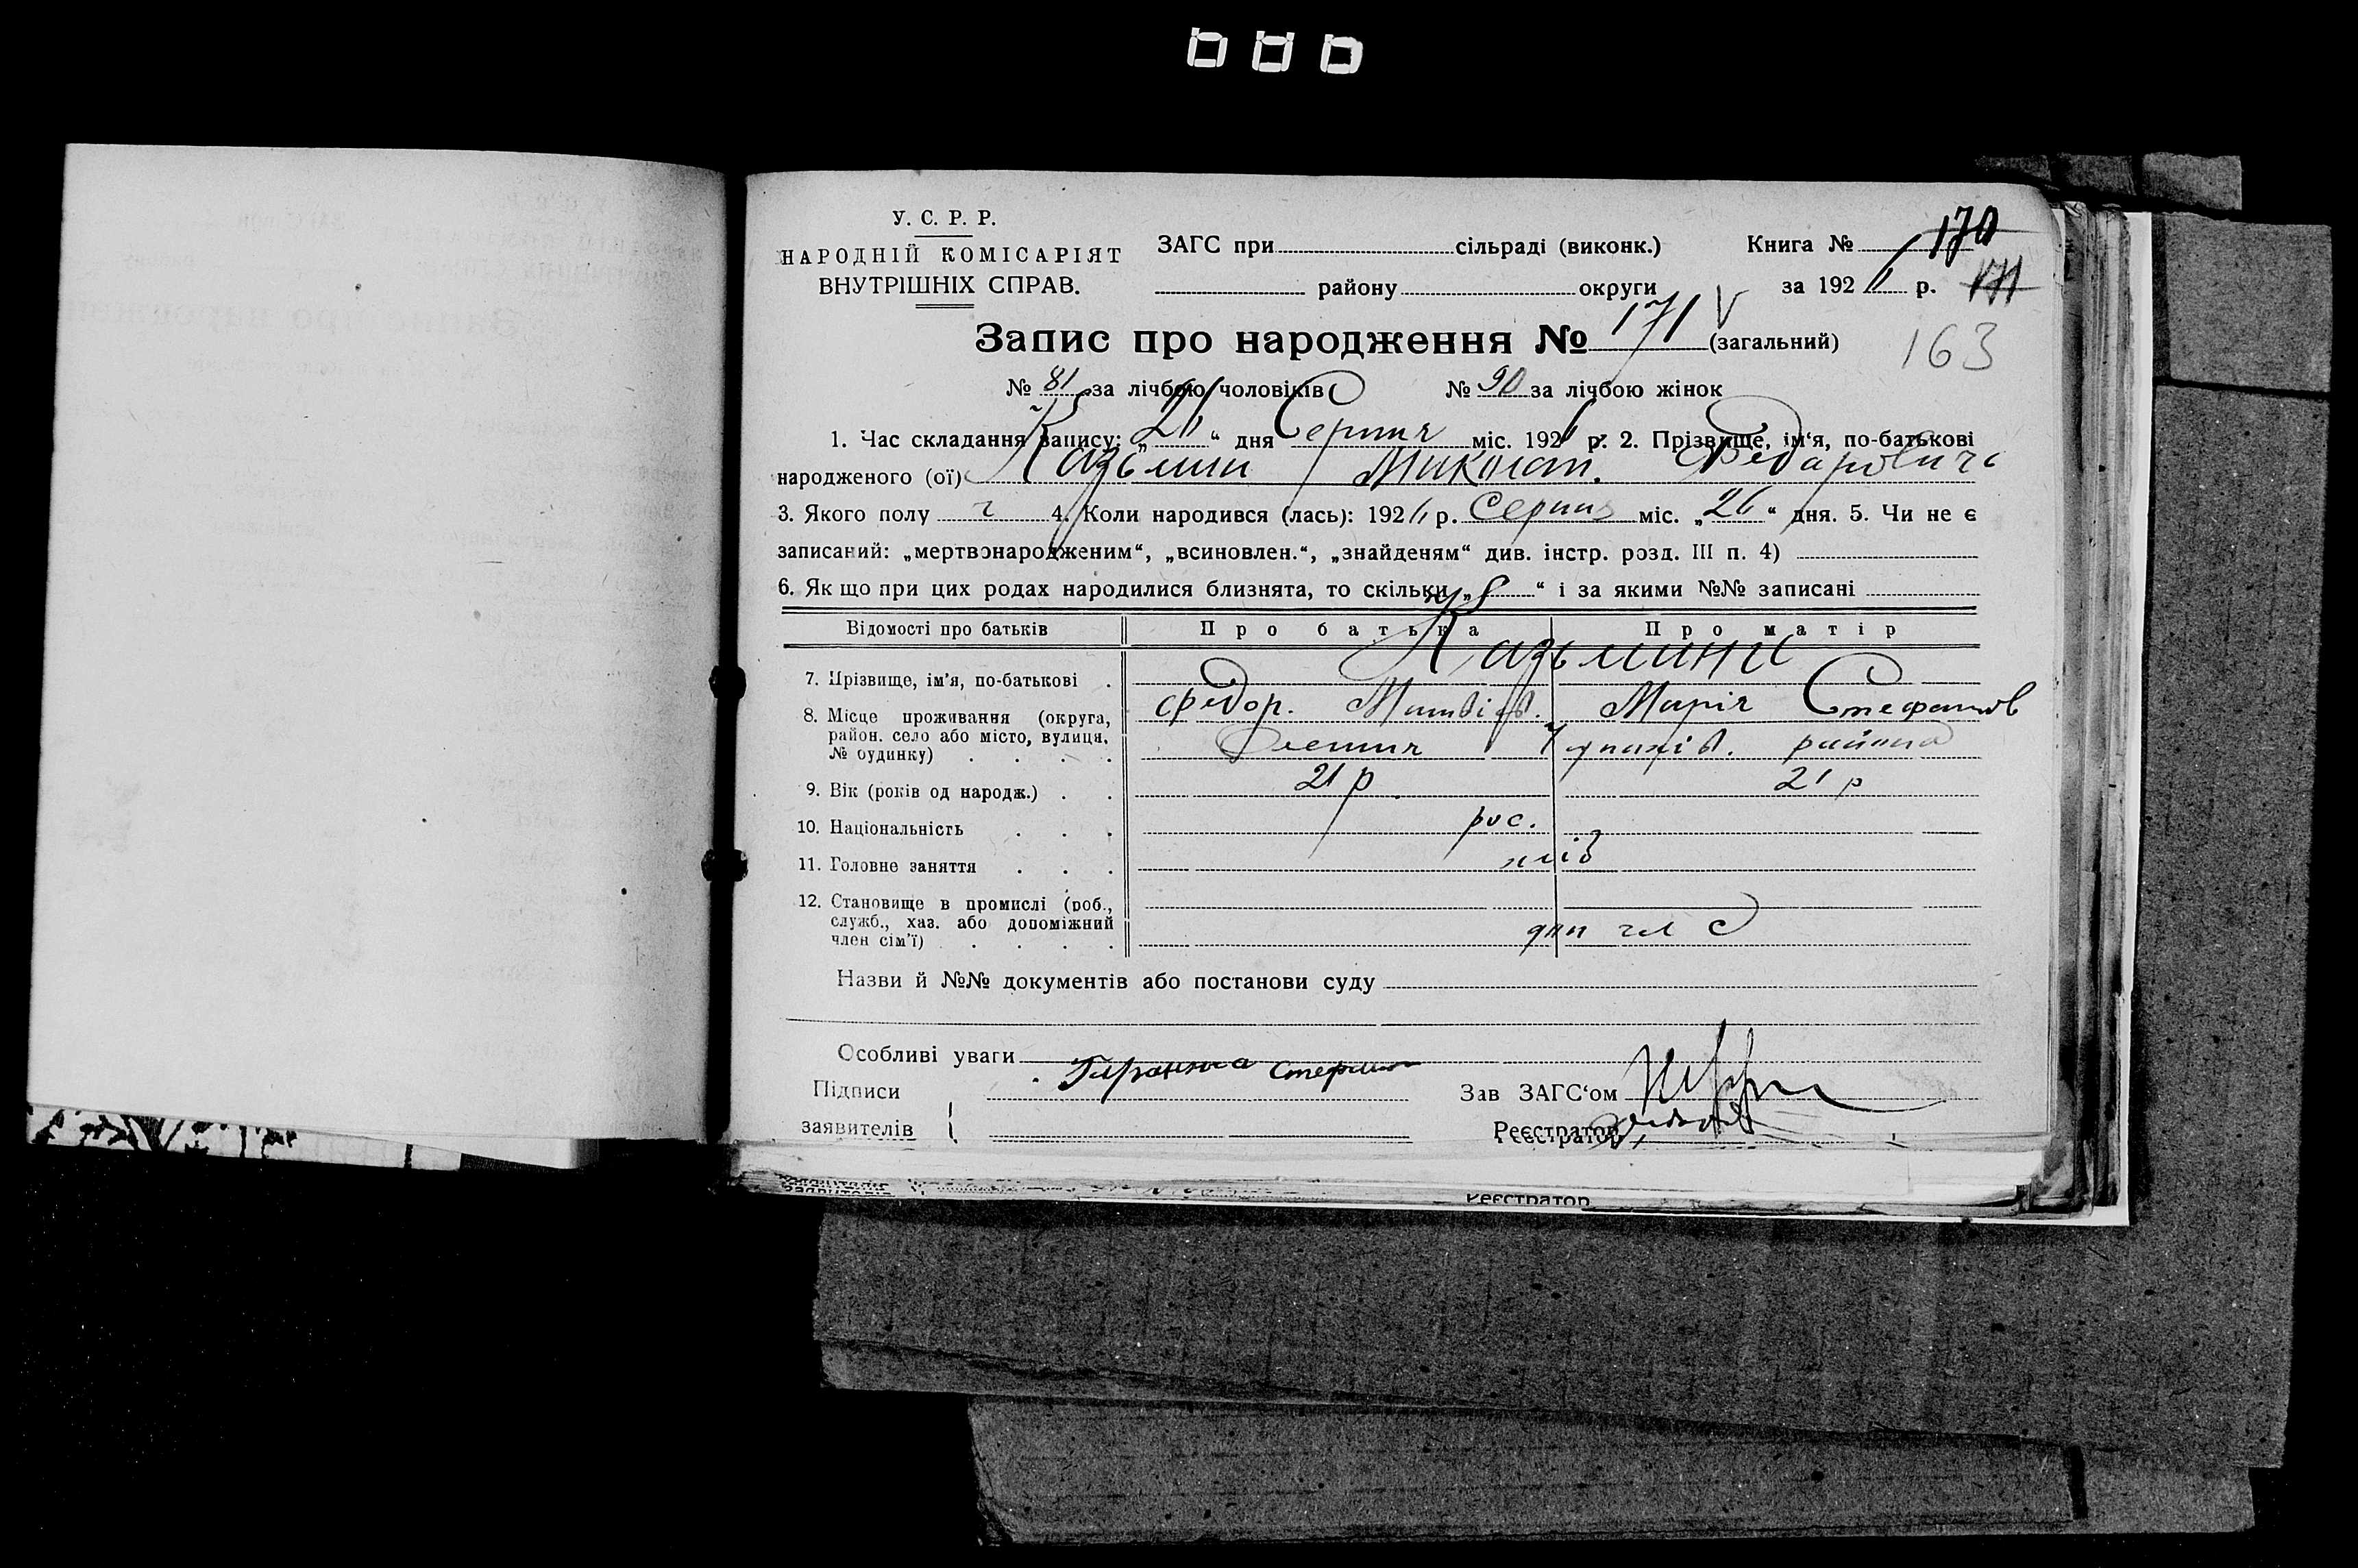 У. С. Р. Р.
НАРОДНІЙ КОМІСАРІЯТ
ВНУТРІШНІХ СПРАВ.
ЗАГС при сільраді (виконк.)
району округи
Книга № 170
за 1926 р. 171
163
Запис про народження № 171 (загальний)
№ 81 за лічбою чоловіків № 90 за лічбою жінок
1. Час складання запису: „26“ дня Серпня міс. 1926 р. 2. Прізвище, ім‘я, по-батькові
народженого (ої) Казьмин Микола. Федарович
3. Якого полу ч 4. Коли народився (лась): 1926 р. Серпня міс. „26“ дня. 5. Чи не є
записаний: „мертвонародженим“, „всиновлен.“, „знайденям“ див. інстр. розд. III п. 4)
6. Як що при цих родах народилися близнята, то скільки „ “ і за якими №№ записані
Відомості про батьків Про батька Про матір
Казьмини
7. Прізвище, ім’я, по-батькові .
Федор. Матвієв. Марія Стефанов
8. Місце проживання (округа,
район. село або місто, вулиця,
№ будинку) . . . .
района
9. Вік (років од народж.) . . 21 р 21 р
10. Національність . . . рос.
11. Головне заняття . . . хліб
12. Становище в промислі (роб.,
служб., хаз. або допоміжний
член сім’ї) . . . . доп чл с
Назви й №№ документів або постанови суду
Особливі уваги
Підписи
заявителів
Зав ЗАГС‘ом
Реєстратор
Реєстратор